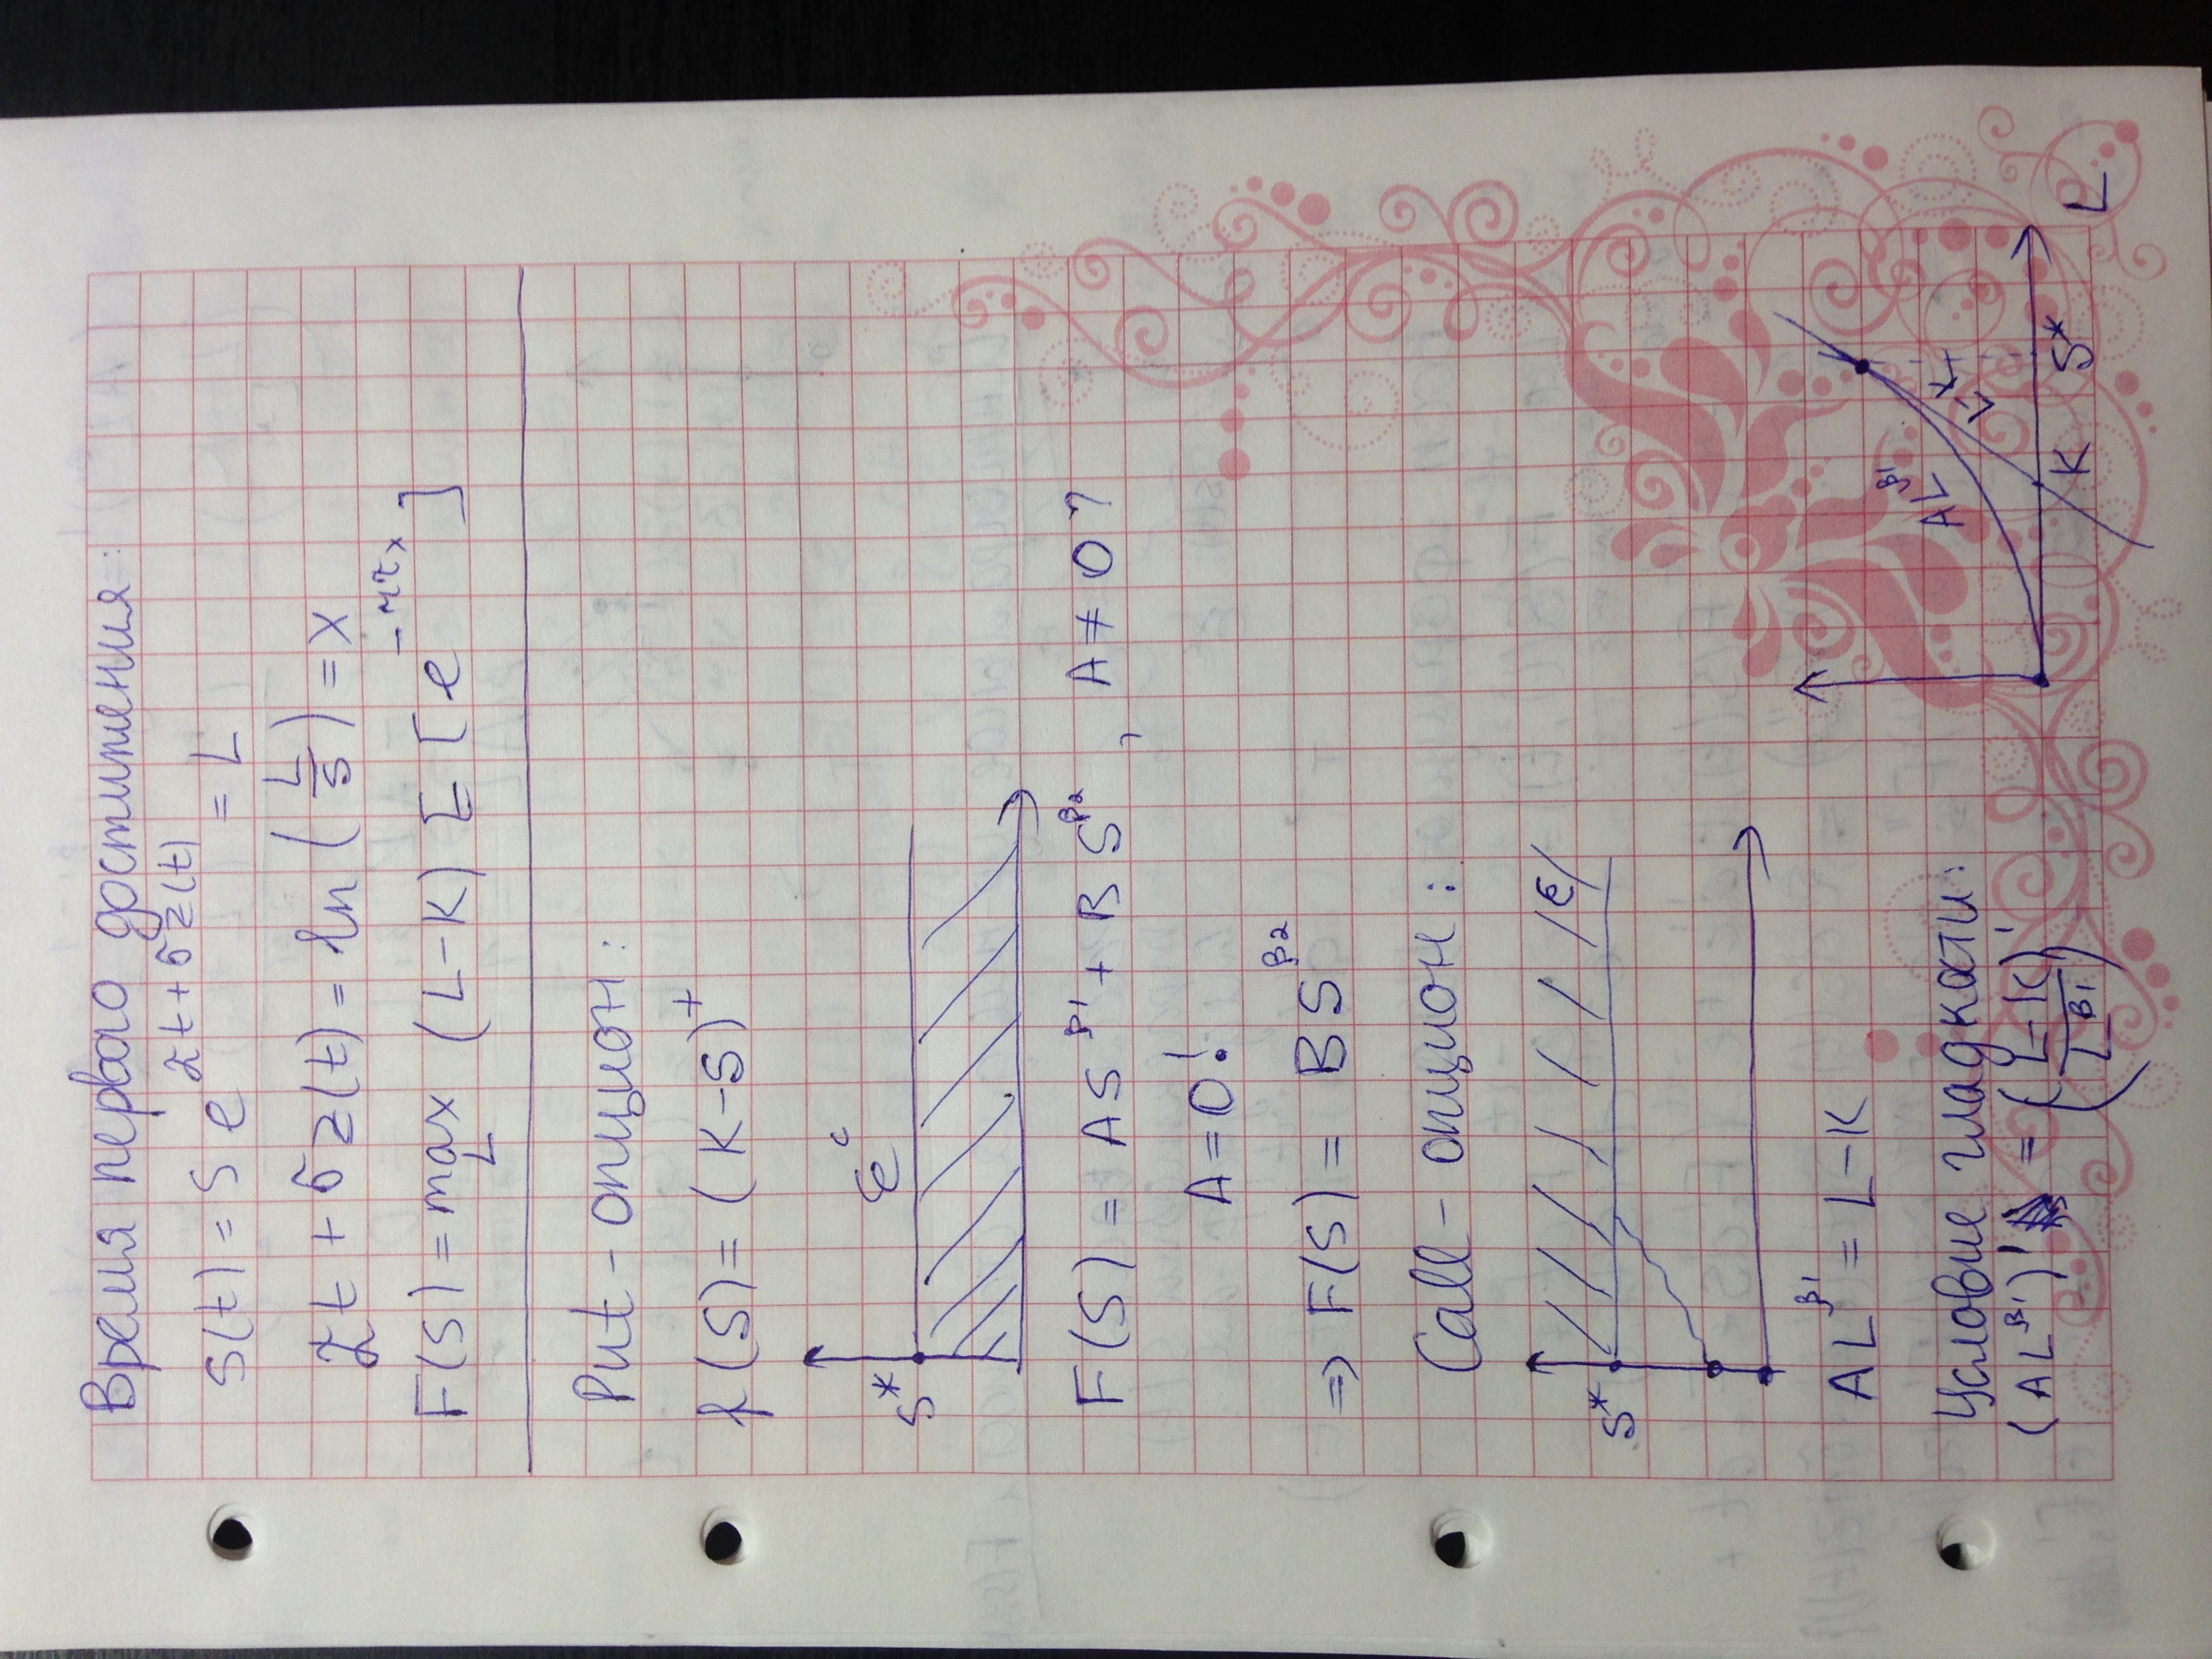 Время первого достижения:
S(t) = S e^{αt + σz(t)} = L
αt + σz(t) = ln(L/S) = x
F(S) = max_L (L-K) E[e^{-rτ_x}]
Put-опцион:
f(S) = (K-S)^+
ℰ^c
S*
F(S) = AS^{β1} + BS^{β2}, A ≠ 0?
A=0!
=> F(S) = BS^{β2}
Call-опцион:
ℰ
S*
AL^{β1} = L-K
Условие гладкости:
(AL^{β1})' = (L-K)'
(L^{β1})
AL^{β1}
L-K
K S* L